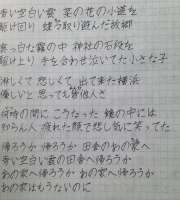 青い空白い雲 菜の花の小道を
駆け回り 蝶々取り遊んだ故郷
真っ白な霧の中 神社の石段を
駆け上り 手を合わせ泣いてた小さな子
淋しくて 悲しくて 出て来た横浜
優しいと 思っても皆他人さ
何時の間に こうなった 鏡の中には
知らん人 疲れた顔で悲し気に笑ってた
帰ろうか 帰ろうか 田舎のあの家へ
青い空白い雲の田舎へ帰ろうか
あの家へ帰ろうか あの家へ帰ろうか
あの家はもうないのに